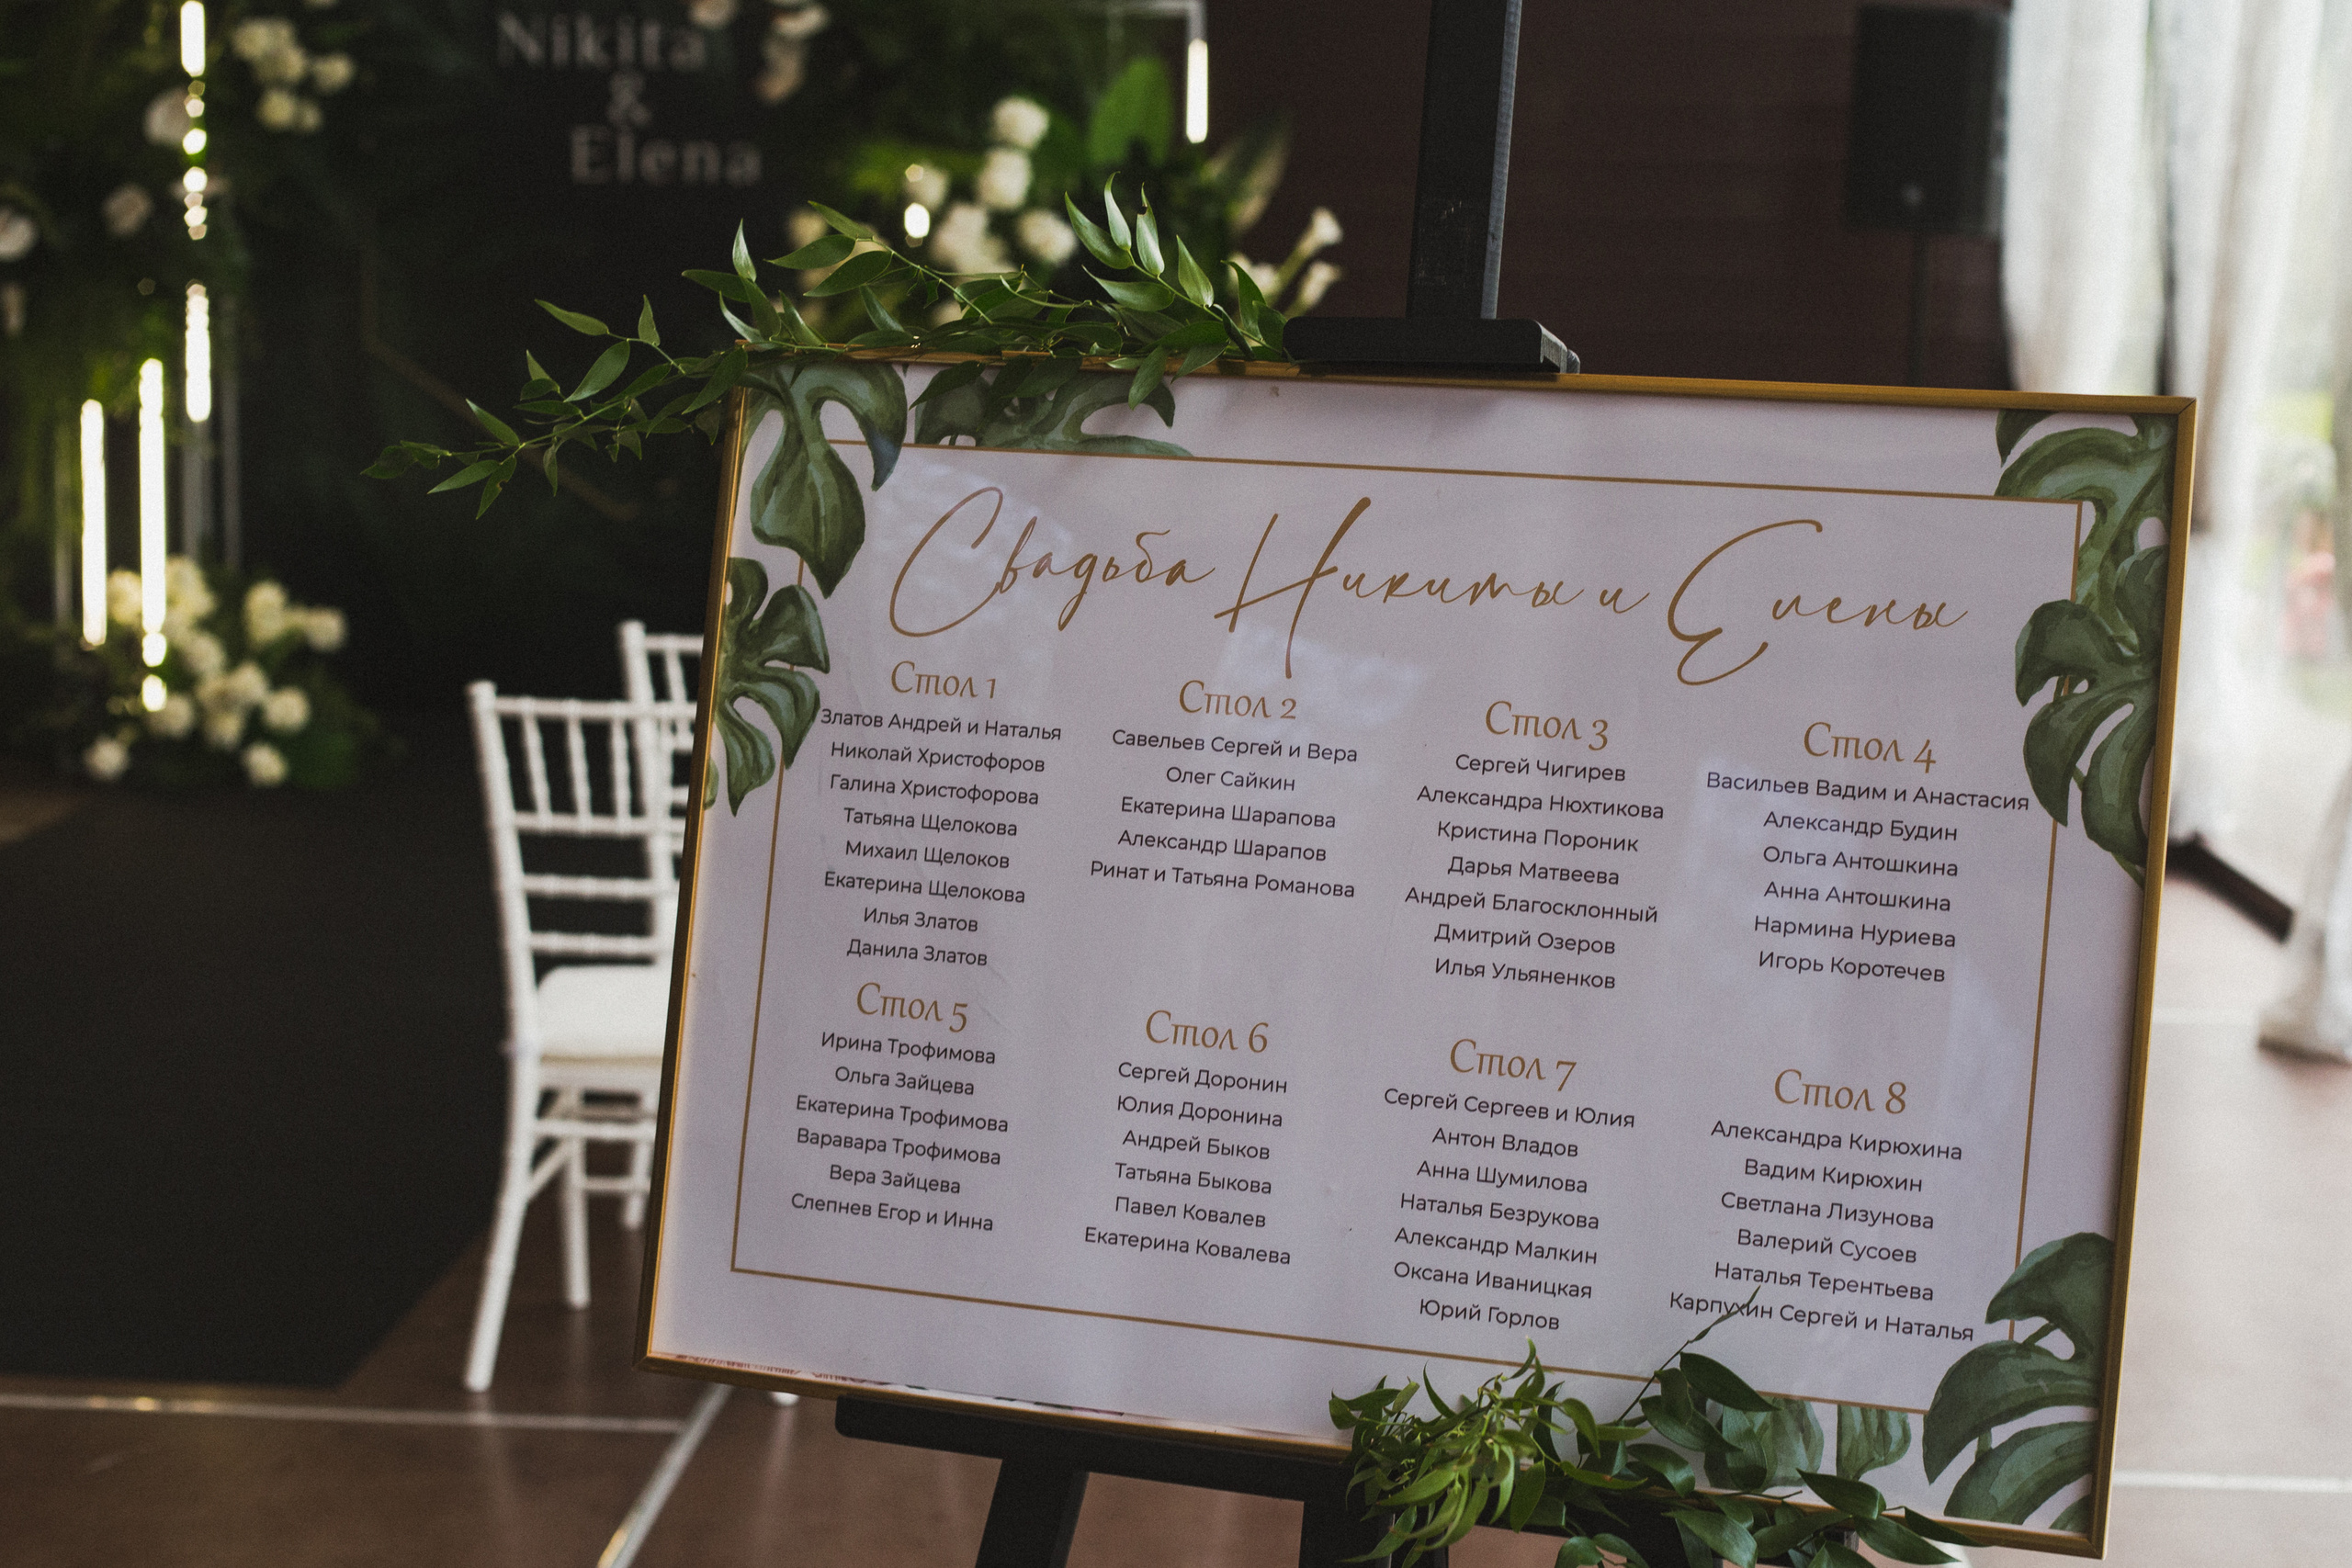 Nikita
&
Elena
Свадьба Никиты и Елены
Стол 1
Златов Андрей и Наталья
Николай Христофоров
Галина Христофорова
Татьяна Щелокова
Михаил Щелоков
Екатерина Щелокова
Илья Златов
Данила Златов
Стол 2
Савельев Сергей и Вера
Олег Сайкин
Екатерина Шарапова
Александр Шарапов
Ринат и Татьяна Романова
Стол 3
Сергей Чигирев
Александра Нюхтикова
Кристина Пороник
Дарья Матвеева
Андрей Благосклонный
Дмитрий Озеров
Илья Ульяненков
Стол 4
Васильев Вадим и Анастасия
Александр Будин
Ольга Антошкина
Анна Антошкина
Нармина Нуриева
Игорь Коротечев
Стол 5
Ирина Трофимова
Ольга Зайцева
Екатерина Трофимова
Варавара Трофимова
Вера Зайцева
Слепнев Егор и Инна
Стол 6
Сергей Доронин
Юлия Доронина
Андрей Быков
Татьяна Быкова
Павел Ковалев
Екатерина Ковалева
Стол 7
Сергей Сергеев и Юлия
Антон Владов
Анна Шумилова
Наталья Безрукова
Александр Малкин
Оксана Иваницкая
Юрий Горлов
Стол 8
Александра Кирюхина
Вадим Кирюхин
Светлана Лизунова
Валерий Сусоев
Наталья Терентьева
Карпухин Сергей и Наталья